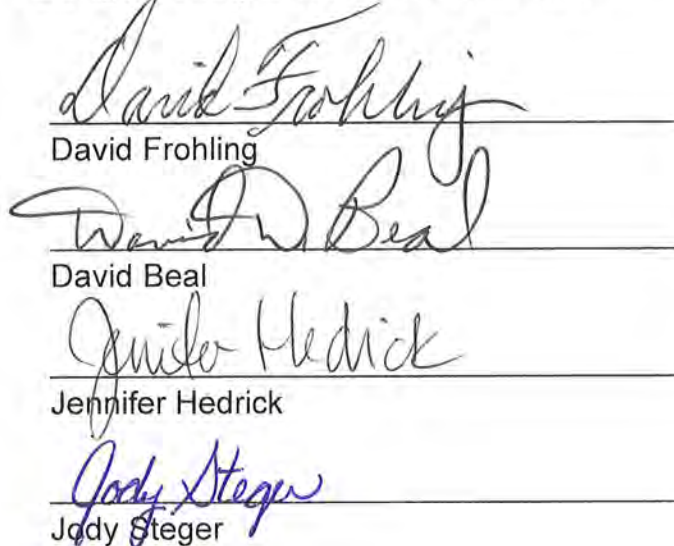 David Frohling
David Frohling
David W. Beal
David Beal
Jennifer Hedrick
Jennifer Hedrick
Jody Steger
Jody Steger